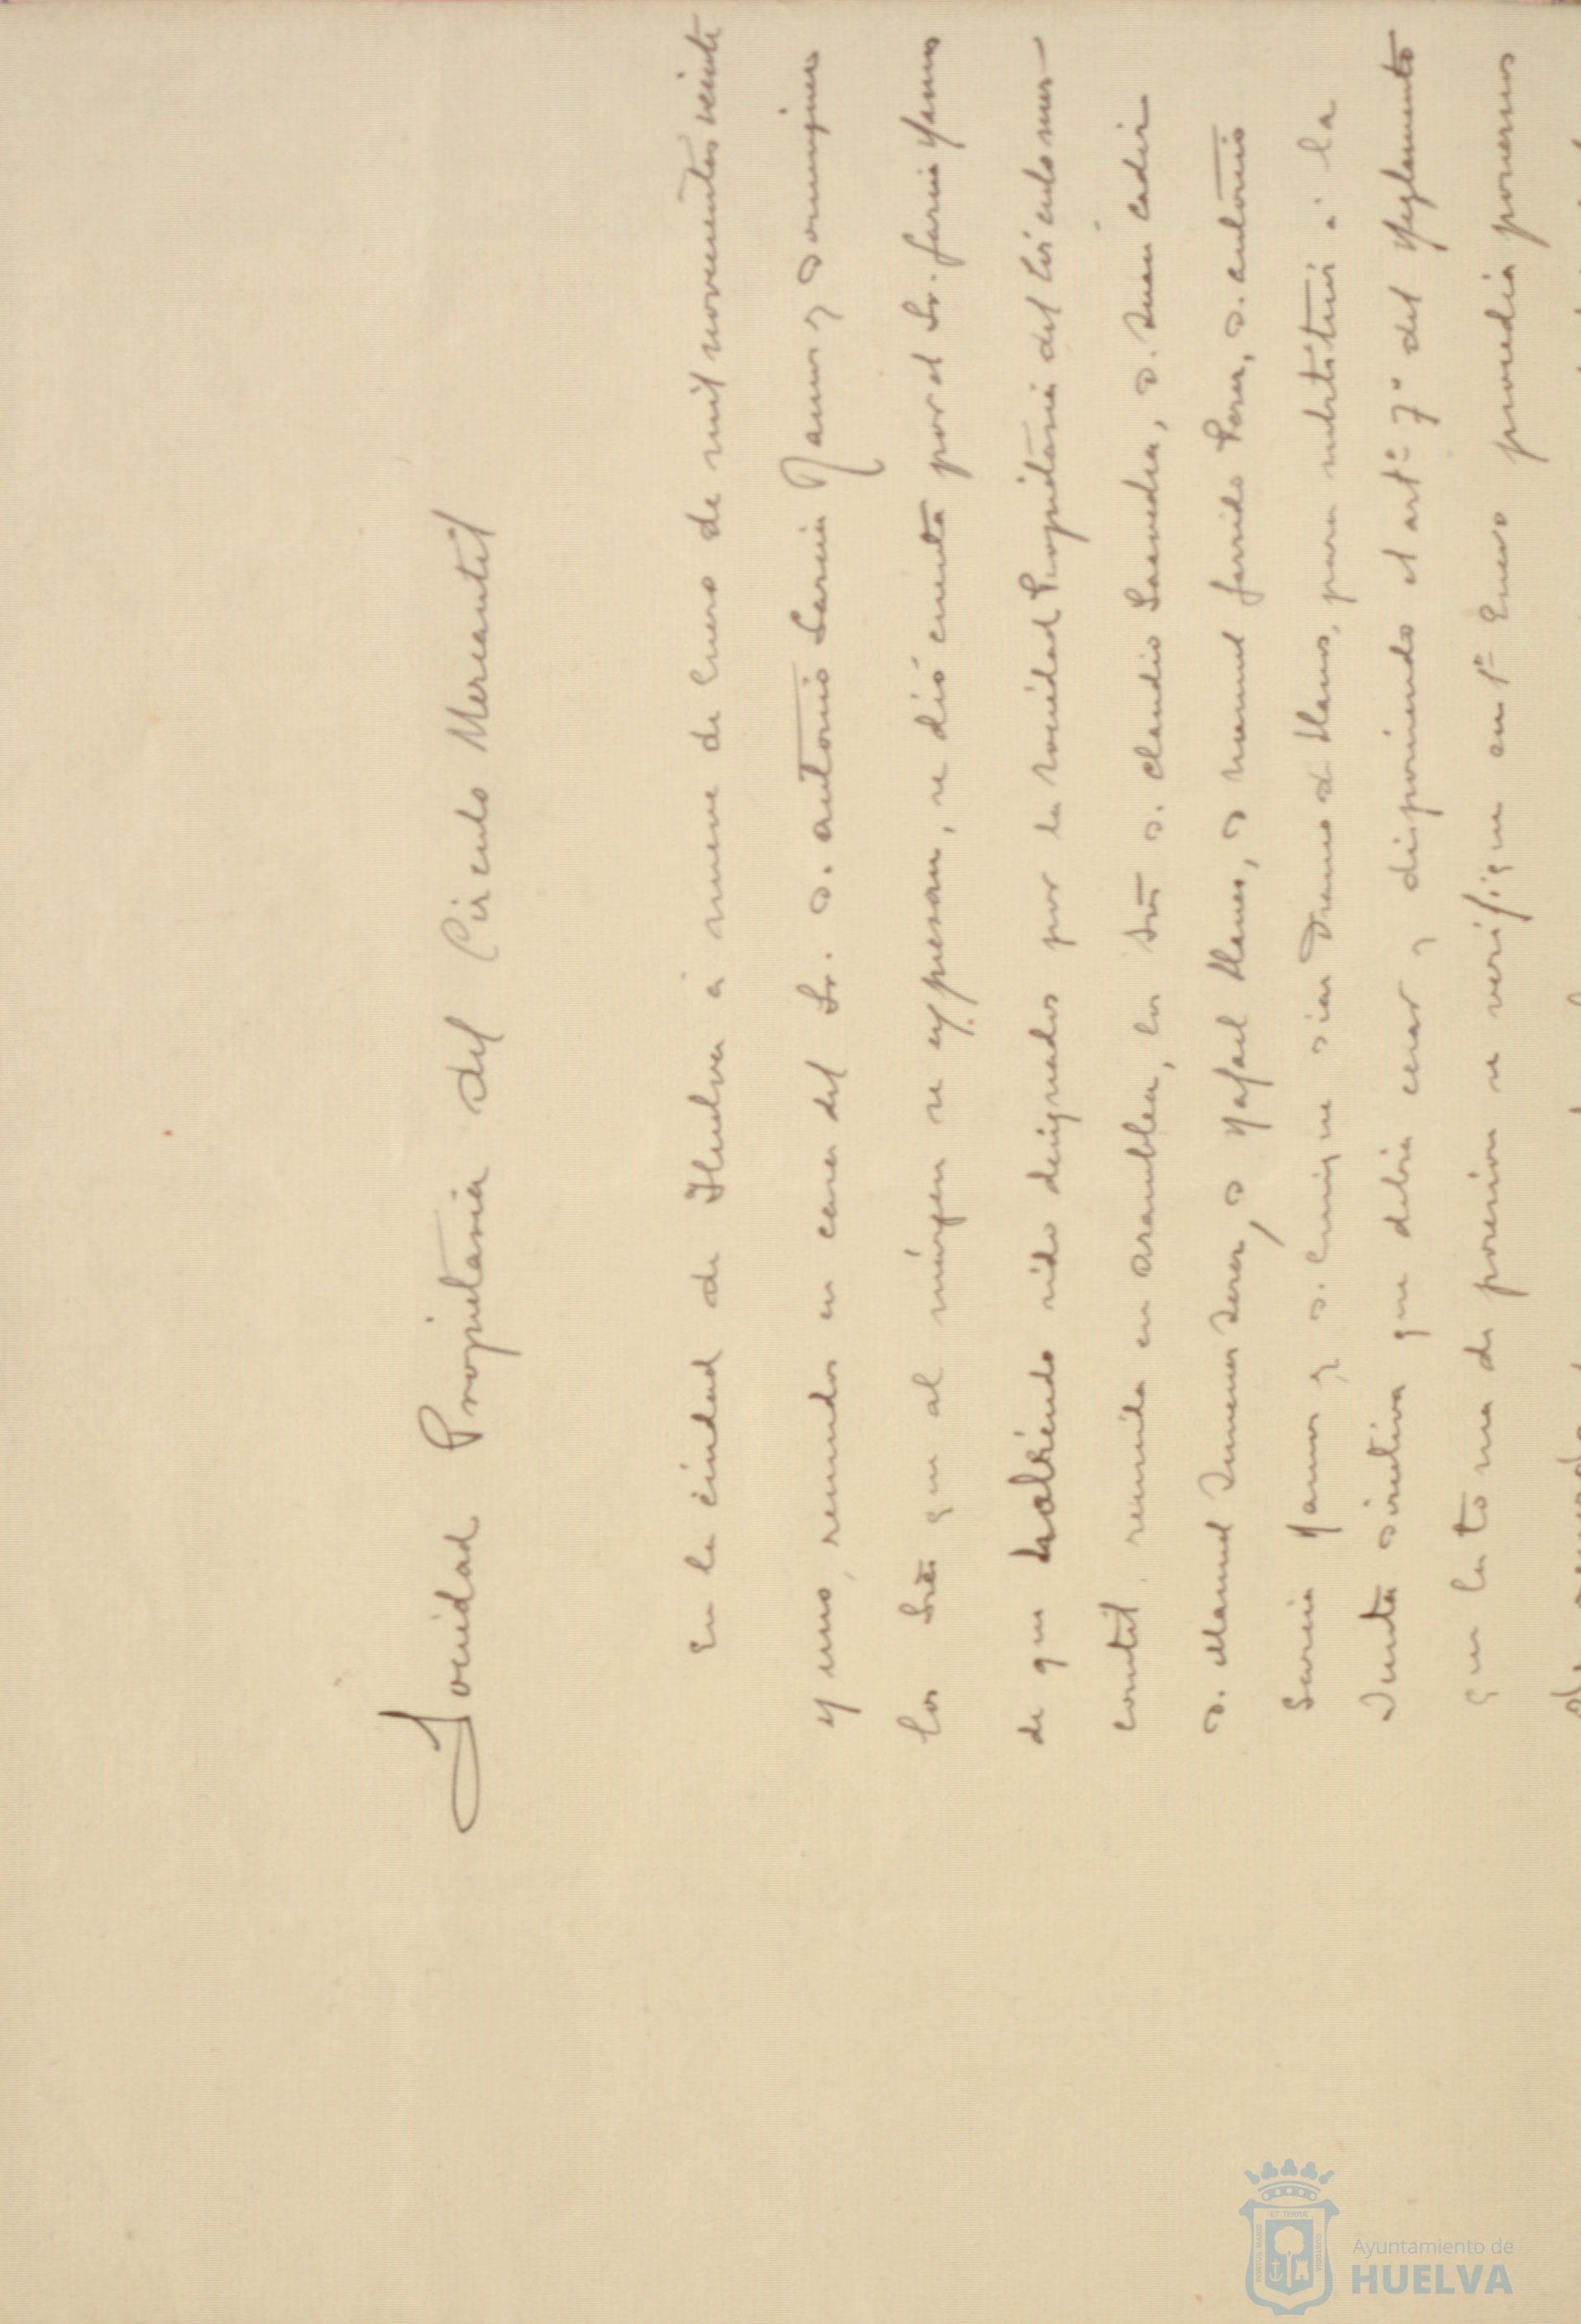 Sociedad Propietaria del Círculo Mercantil
En la ciudad de Huelva á nueve de Enero de mil novecientos veinte
y uno, reunidos en casa del Sr. D. Antonio Garcia Ramos y Dominguez
los Sres que al márgen se expresan, se dió cuenta por el Sr. Garcia Ramos
de que habiendo sido designados por la Sociedad Propietaria del Círculo Mer-
cantil, reunida en asamblea, los Sres D. Claudio Saavedra, D. Juan Cadiz
D. Manuel Jimenez, D Rafael Llanes, D Manuel Garrido Perez, D. Antonio
Garcia Ramos y D. Enrique Diaz Franco de Llanos, para substituir á la
Junta Directiva que debia cesar y disponiendo el artº 7º del Reglamento
que la toma de posesion se verifique en 1º Enero procedia ponernos
de acuerdo
ET TERRAE
PORTUS MARIS
CUSTODIA
Ayuntamiento de
HUELVA